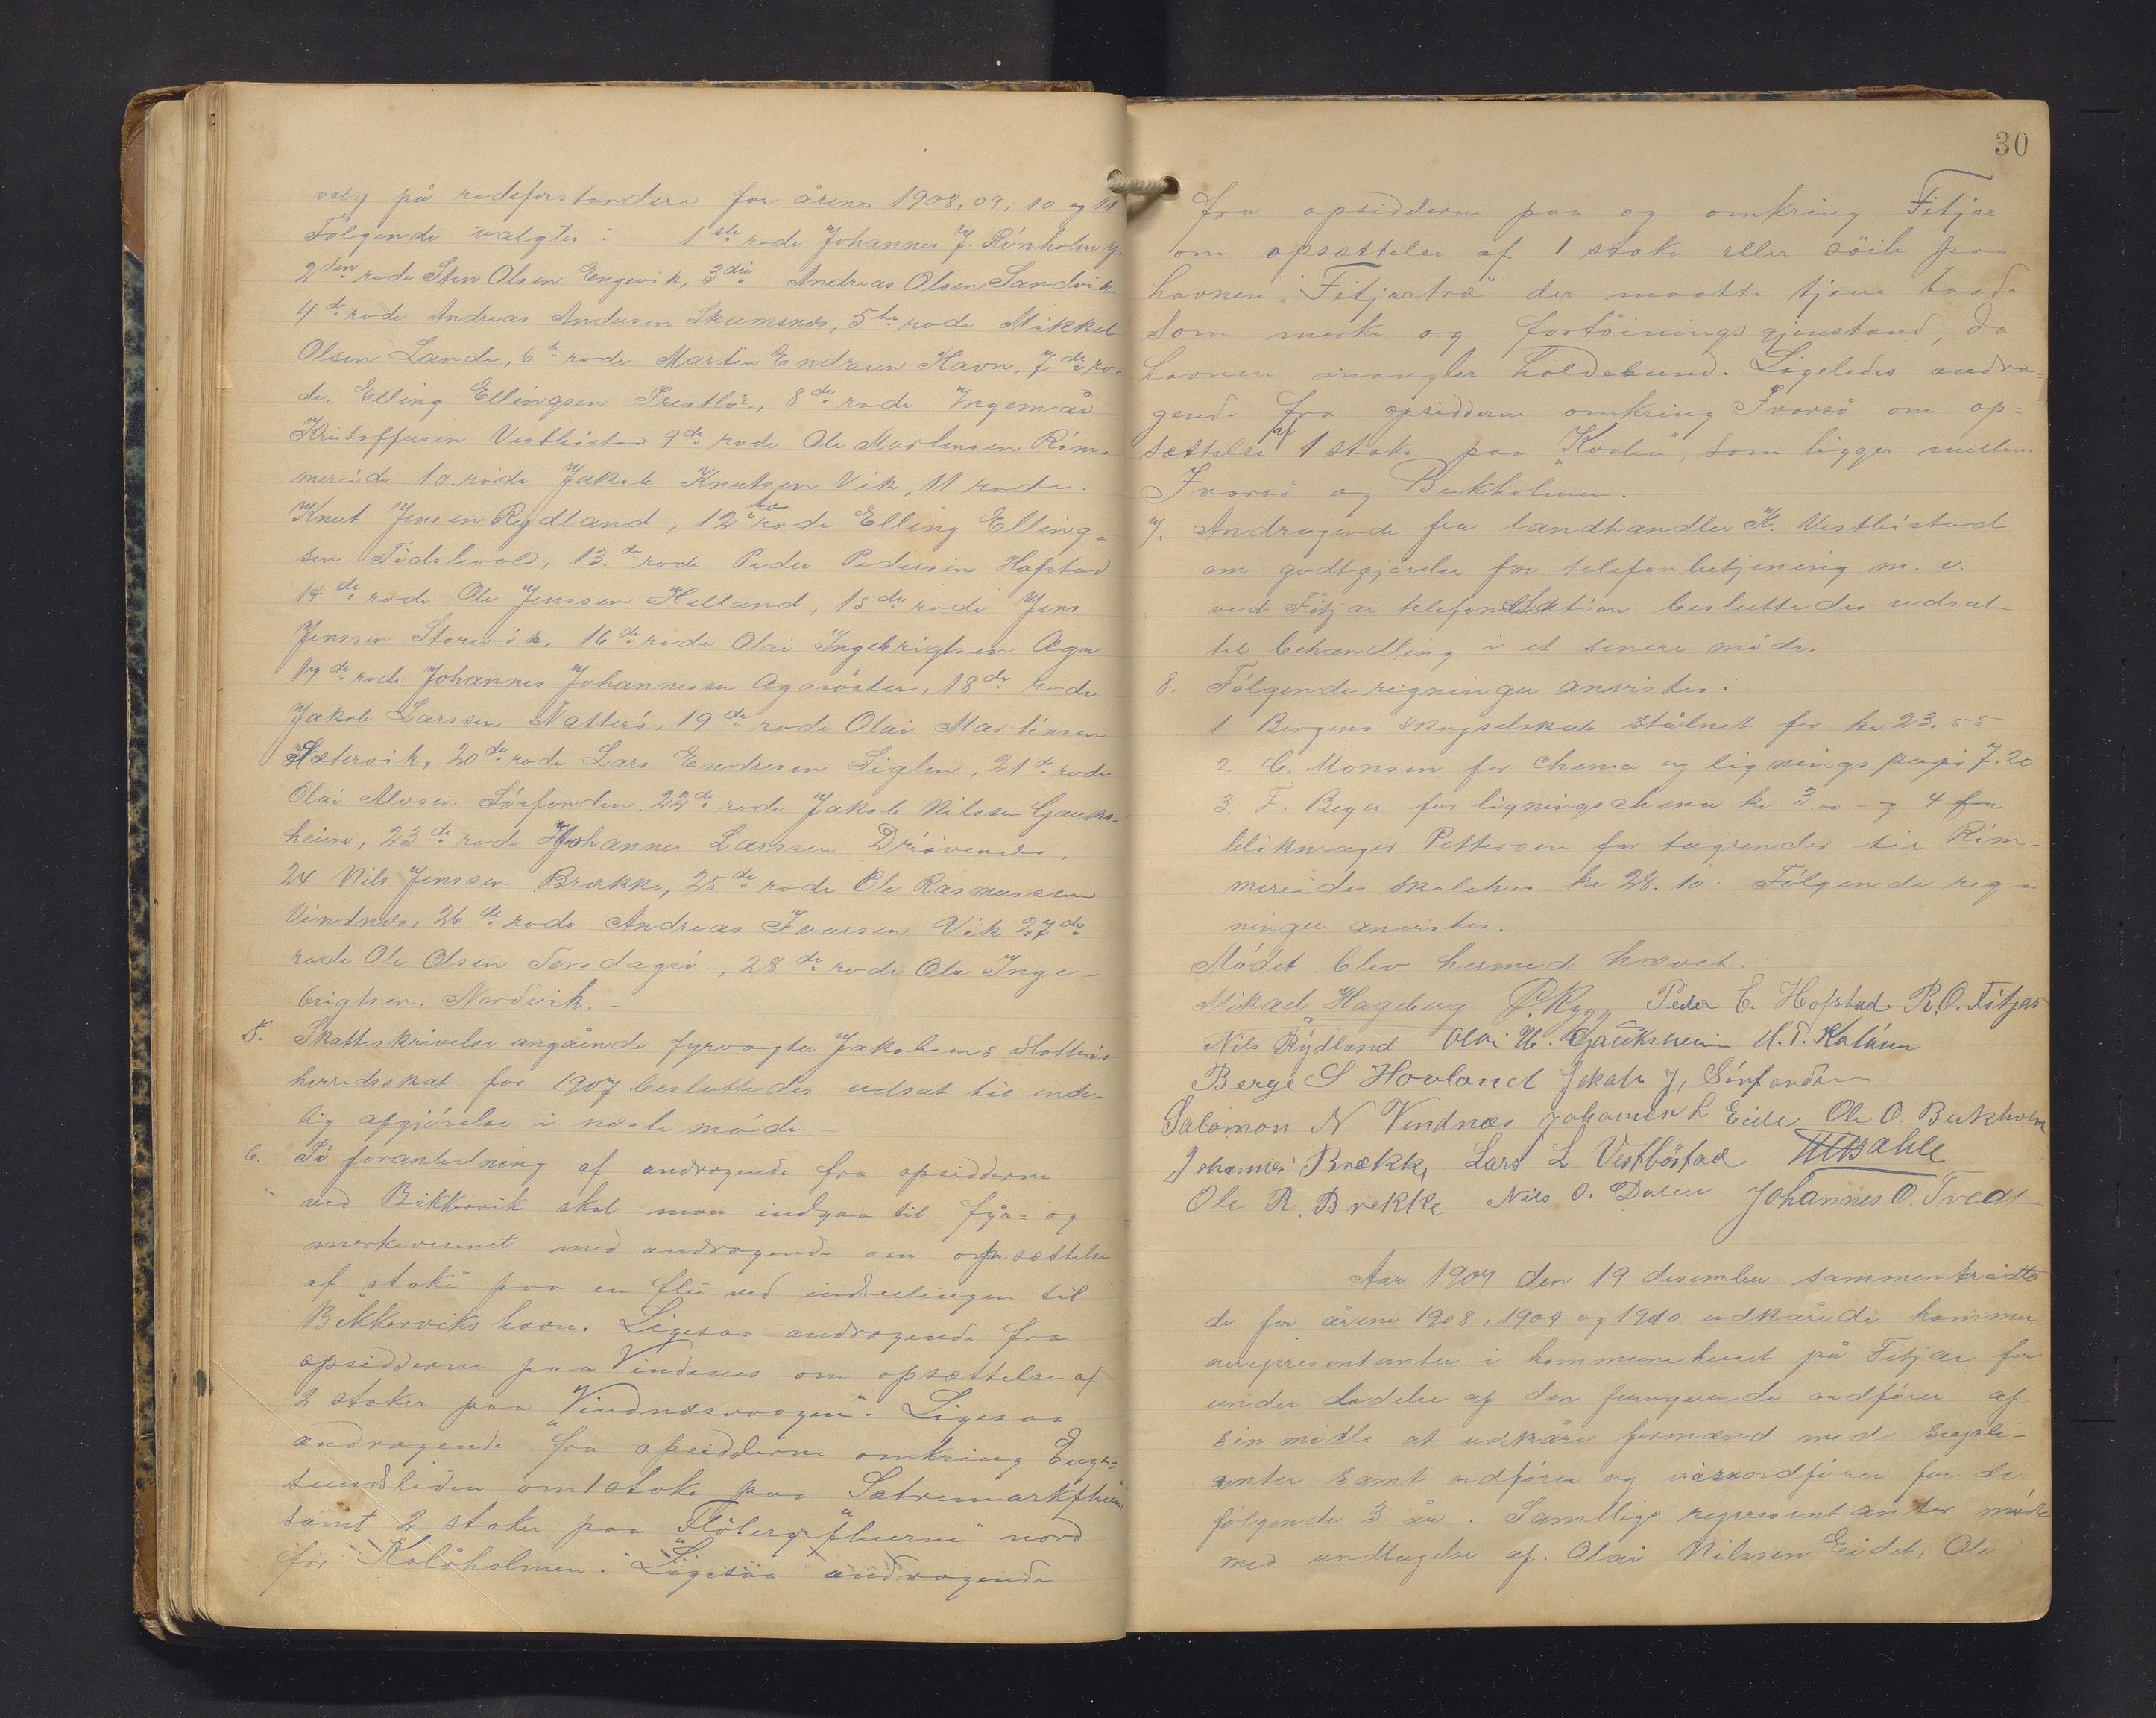 valg på rodeforstandere for årene 1908, 09, 10 og 11
Følgende valgtes: 1ste rode Johannes J. Rönholm
2den rode Sten Olsen Engevik, 3die Andreas Olsen Sandvik
4de rode Andreas Andersen Skumsnes, 5te rode Mikkel
Olsen Lande, 6te rode Martin Endresen Havn, 7de ro-
de. Elling Ellingsen Prestbö, 8de rode Ingemår
Kristoffersen Vestbøstad 9de rode Ole Martinsen Rim-
mereide 10. rode Jakob Knutsen Vik, 11 rode.
Knut Jensen Rydland, 12te rode Elling Elling-
sen Tislevold, 13de rode Peder Pedersen Hofstad
14de rode Ole Jenssen Helland, 15de rode Jens
Jenssen Storevik, 16de rode Olai Ingebrigtsen Aga
17de rode Johannes Johannessen Agasöster, 18de rode
Jakob Larssen Natterö, 19de rode Olai Martinsen
Sætervik, 20de rode Lars Endresen Siglen, 21de rode
Olai Alvsen Sörfonden 22de rode Jakob Nilssen Gauks-
heim, 23de rode Johannes Larssen Drivenes,
24 Nils Jenssen Brække, 25de rode Ole Rasmussen
Vindnes, 26de rode Andreas Ivarsen Vik 27de
rode Ole Olsen Torsdagsö, 28de rode Ole Inge-
brigtsen. Nordvik. -
5. Skatteskrivelse angående fyrvogter Jakobsens Slotterøs
herredsskat for 1907 besluttedes udsat til ende-
lig afgjörelse i næste möde.
6. På foranledning af andragende fra opsidderne
ved Bekkervik skal man indgaa til fyr= og
merkevesenet med andragende om opsættelse
af "stake" paa en flu ved indseilingen til
Bekkerviks havn. Ligesaa andragende fra
opsidderne paa Vindenes om opsættelse af
2 staker paa "Vindnæsvaagen". Ligesaa
andragende fra opsidderne omkring Enge=
sundsleden om 1 stake paa "Sætremarkfluen
samt 2 staker paa "Flötergrfluerne" nord
for Kalöholmen. Ligesaa andragende
30
fra opsidderne paa og omkring Fitjar
om opsættelse af 1 stake eller söile paa
havnen "Fitjartræ" der maatte tjene baade
som merke og fortöiningsgjenstand, da
havnen mangler holdebund. Ligeledes andra=
gende fra opsidderne omkring Ivarsö om op=
sættelse af 1 stake paa "Kvolen", som ligger mellem
Ivarsö og Bukholmen.
7. Andragende fra landhandler K. Vestböstad
om godtgjörelse for telefonbetjening m. v.
ved Fitjar telefonstation besluttedes udsat
til behandling i et senere möde.
8. Følgende regninger anvistes:
1 Bergens Skogselskab stålnet for kr 23.55
2 C. Monsen for chema og lignings papir 7.20
3. F. Beyer for ligningschema kr 3.00 - og 4 fra
blikmager Pettersen for tagrender til Rim-
mereides skolehus kr 28.10. Følgende reg-
ninger anvistes.
Mödet blev hermed hævet.
Mikael Hageberg P. Rygg Peder E. Hofstad R. O. Fitjar
Nils Rydland Olai N. Gauksheim H. T. Kaløen
Berge S Hovland Jakob J, Sörfonden
Salomon N Vindnæs Johannes L Eide Ole O. Bukholm
Johannes Brækk, Lars L Vestböstad
Ole R. Brekke Nils O. Dalen Johannes O. Tvedt
Aar 1907 den 19 desember sammentrådte
de for årene 1908, 1909 og 1910 udkårede kommu
nerepresentanter i kommunehuset på Fitjar for
under ledelse af den fungerende ordförer af
sin midte at udkåre formænd med suple-
anter samt ordförer og viseordförer for de
følgende 3 år. Samtlige representanter mödte
med undtagelse af. Olai Nilssen Eidet, Ole